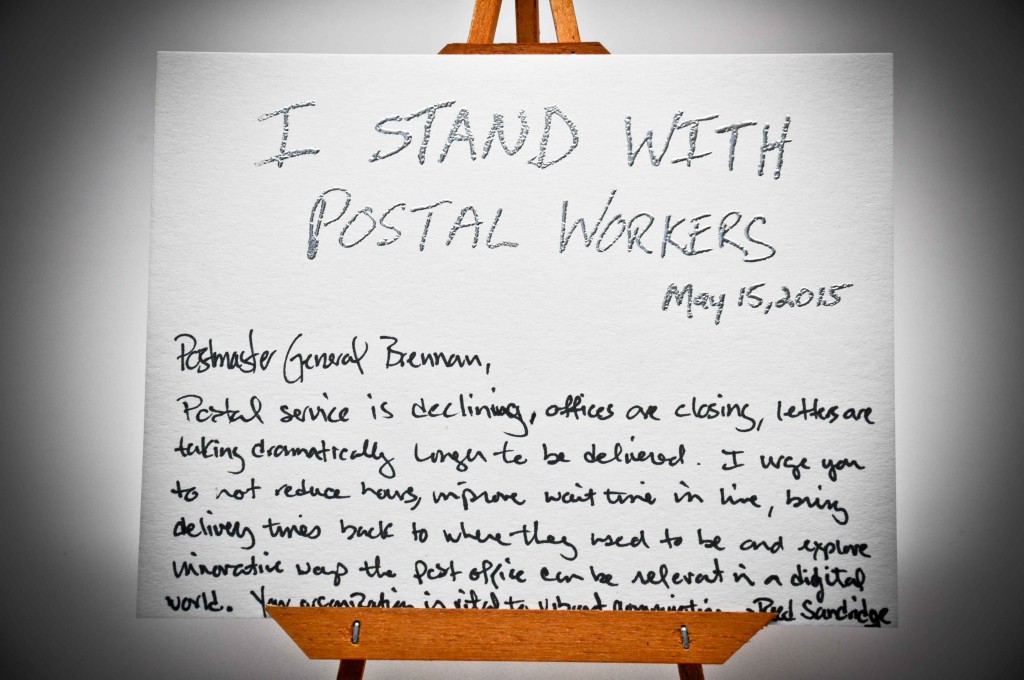 I STAND WITH
POSTAL WORKERS
May 15, 2015
Postmaster General Brennan,
Postal service is declining, offices are closing, letters are
taking dramatically longer to be delivered. I urge you
to not reduce hours, improve wait time in line, bring
delivery times back to where they used to be and explore
innovative ways the post office can be relevant in a digital
world. Your organization is vital to vibrant communities. - Reed Sandridge